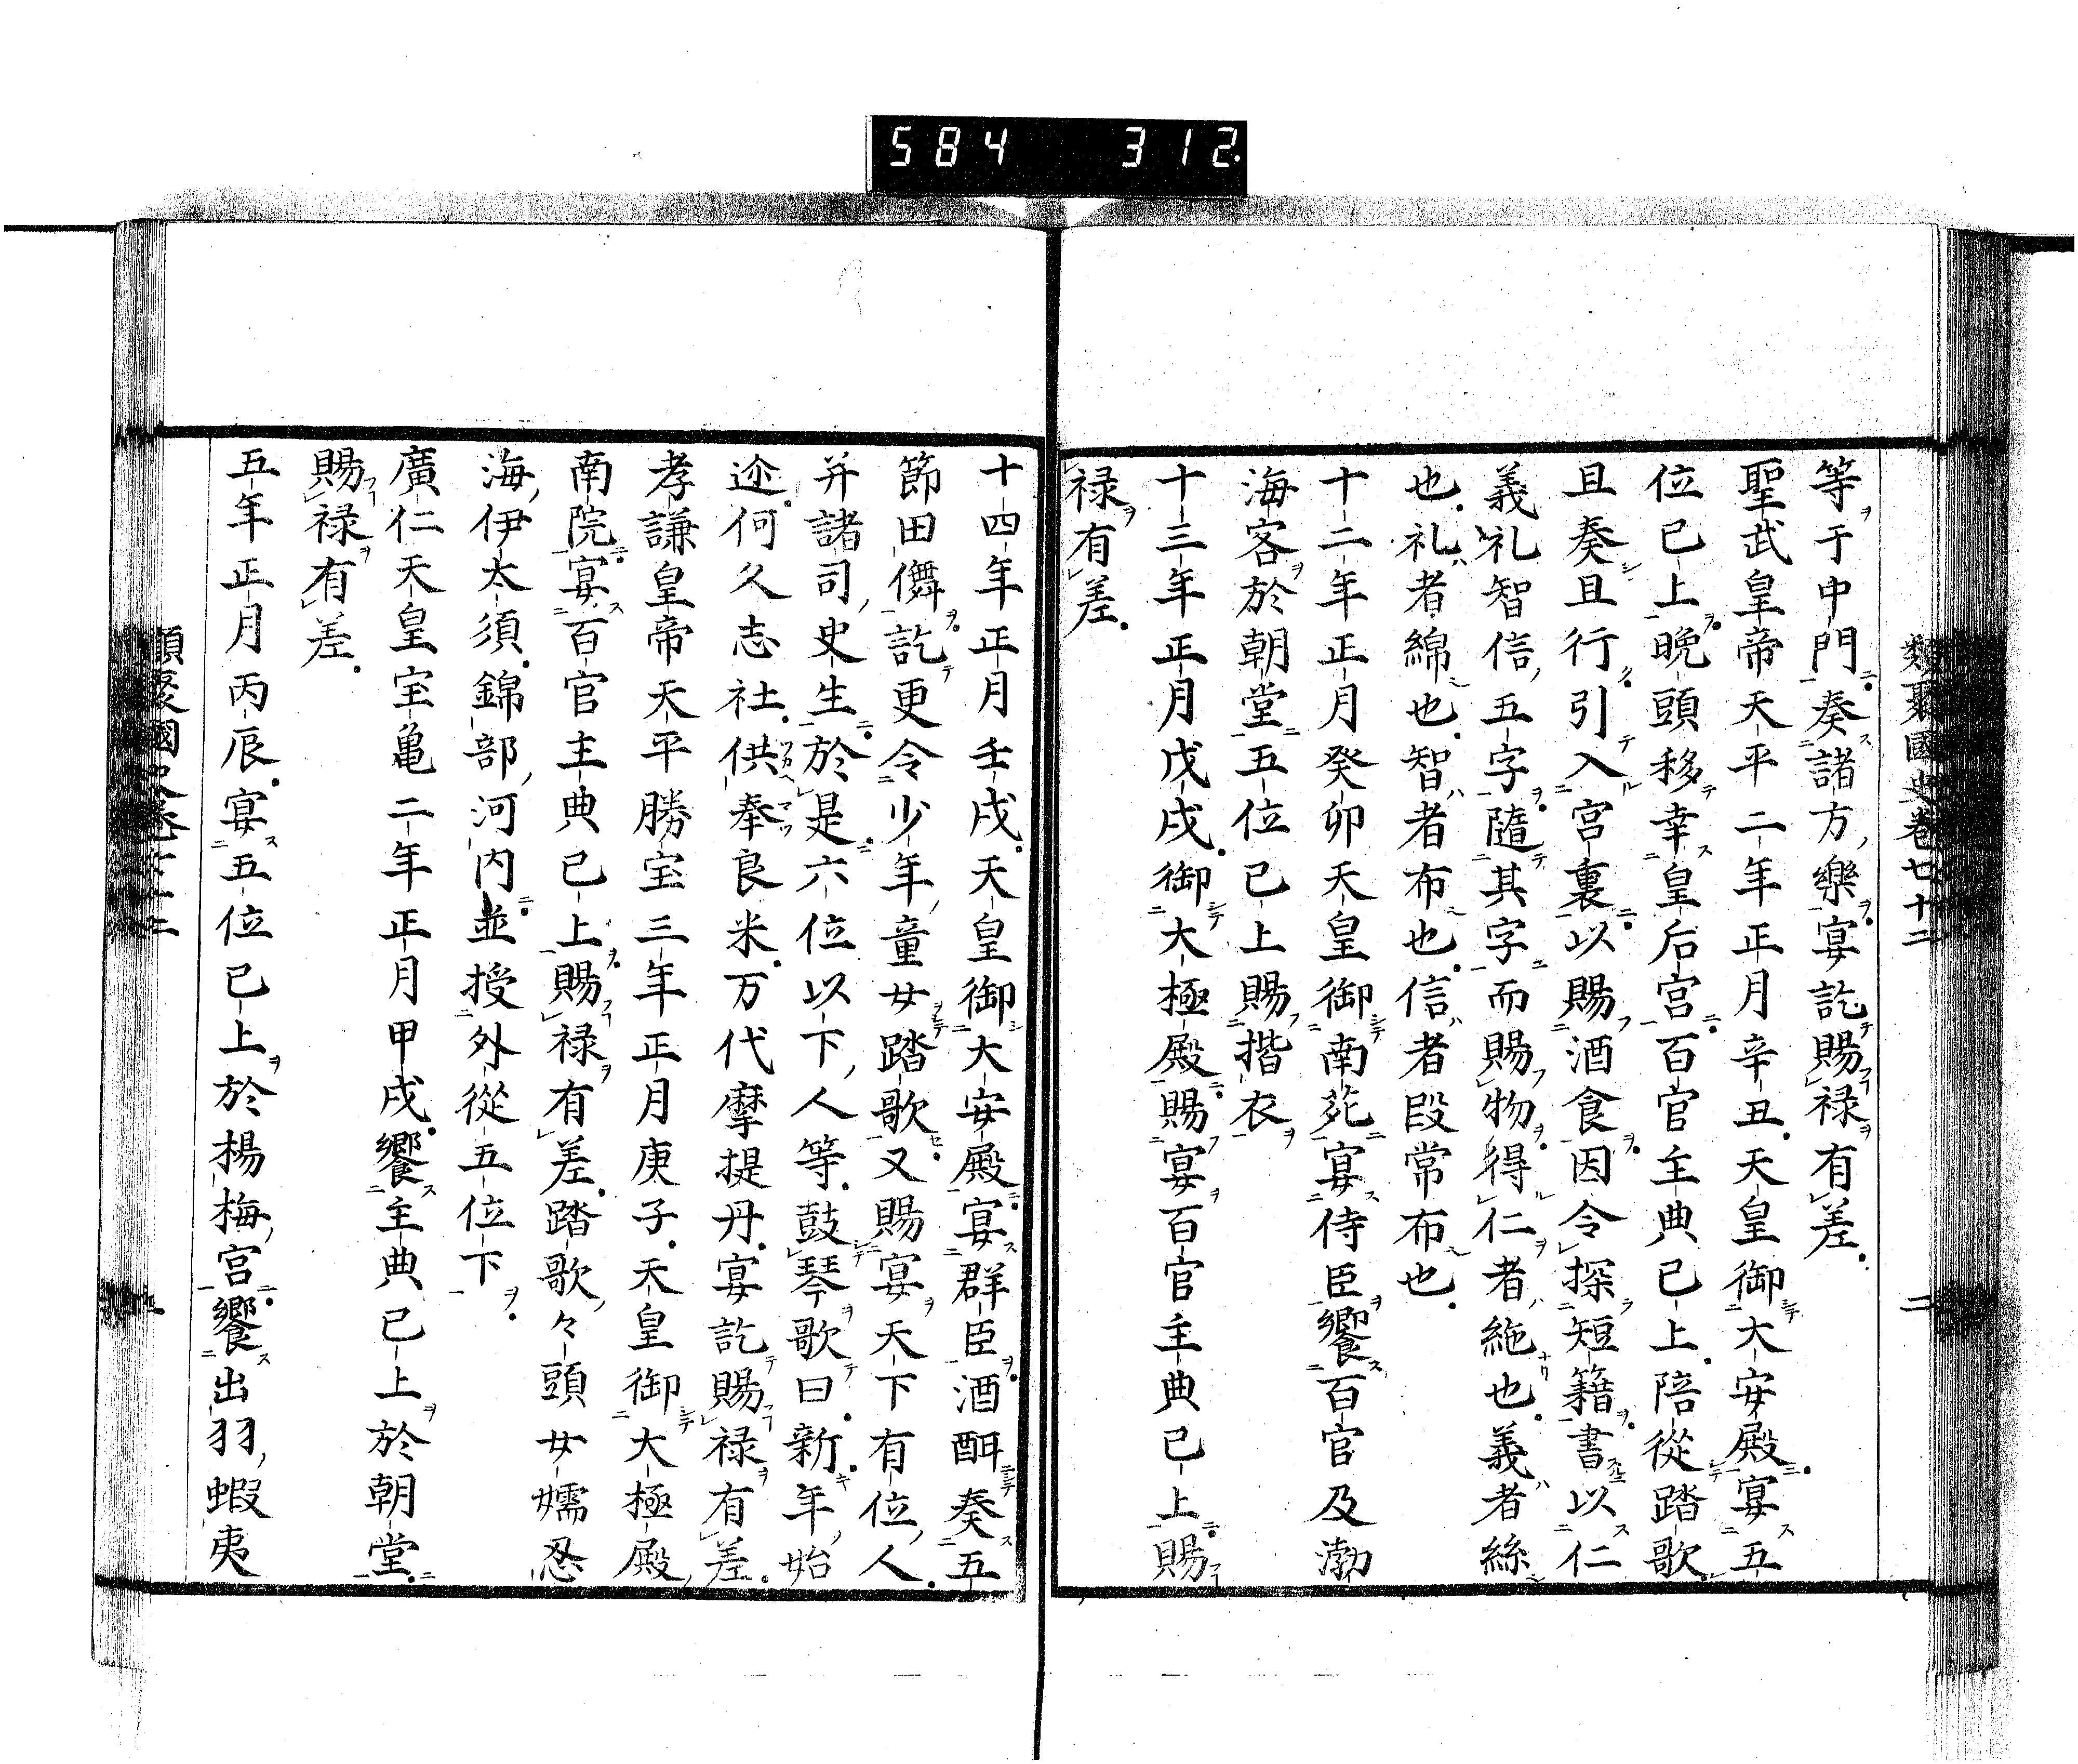 584 312
類聚國史卷七十二 二
等于中門奏諸方樂宴訖賜禄有差
聖武皇帝天平二年正月辛丑天皇御大安殿宴五
位已上晩頭移幸皇后宮百官主典已上陪從踏歌
且奏且行引入宮裏以賜酒食因令探短籍書以仁
義礼智信五字隨其字而賜物得仁者絁也義者絲
也礼者綿也智者布也信者段常布也
十二年正月癸卯天皇御南苑宴侍臣饗百官及渤
海客於朝堂五位已上賜揩衣
十三年正月戊戌御大極殿賜宴百官主典已上賜
禄有差
十四年正月壬戌天皇御大安殿宴群臣酒酣奏五
節田儛訖更令少年童女踏歌又賜宴天下有位人
并諸司史生於是六位以下人等鼓琴歌曰新年始
迩何久志社供奉良米万代摩提丹宴訖賜禄有差
孝謙皇帝天平勝宝三年正月庚子天皇御大極殿
南院宴百官主典已上賜禄有差踏歌々頭女嬬忍
海伊太須錦部河内並授外從五位下
廣仁天皇宝亀二年正月甲戌饗主典已上於朝堂
賜禄有差
五年正月丙辰宴五位已上於揚梅宮饗出羽蝦夷
類聚國史卷七十二